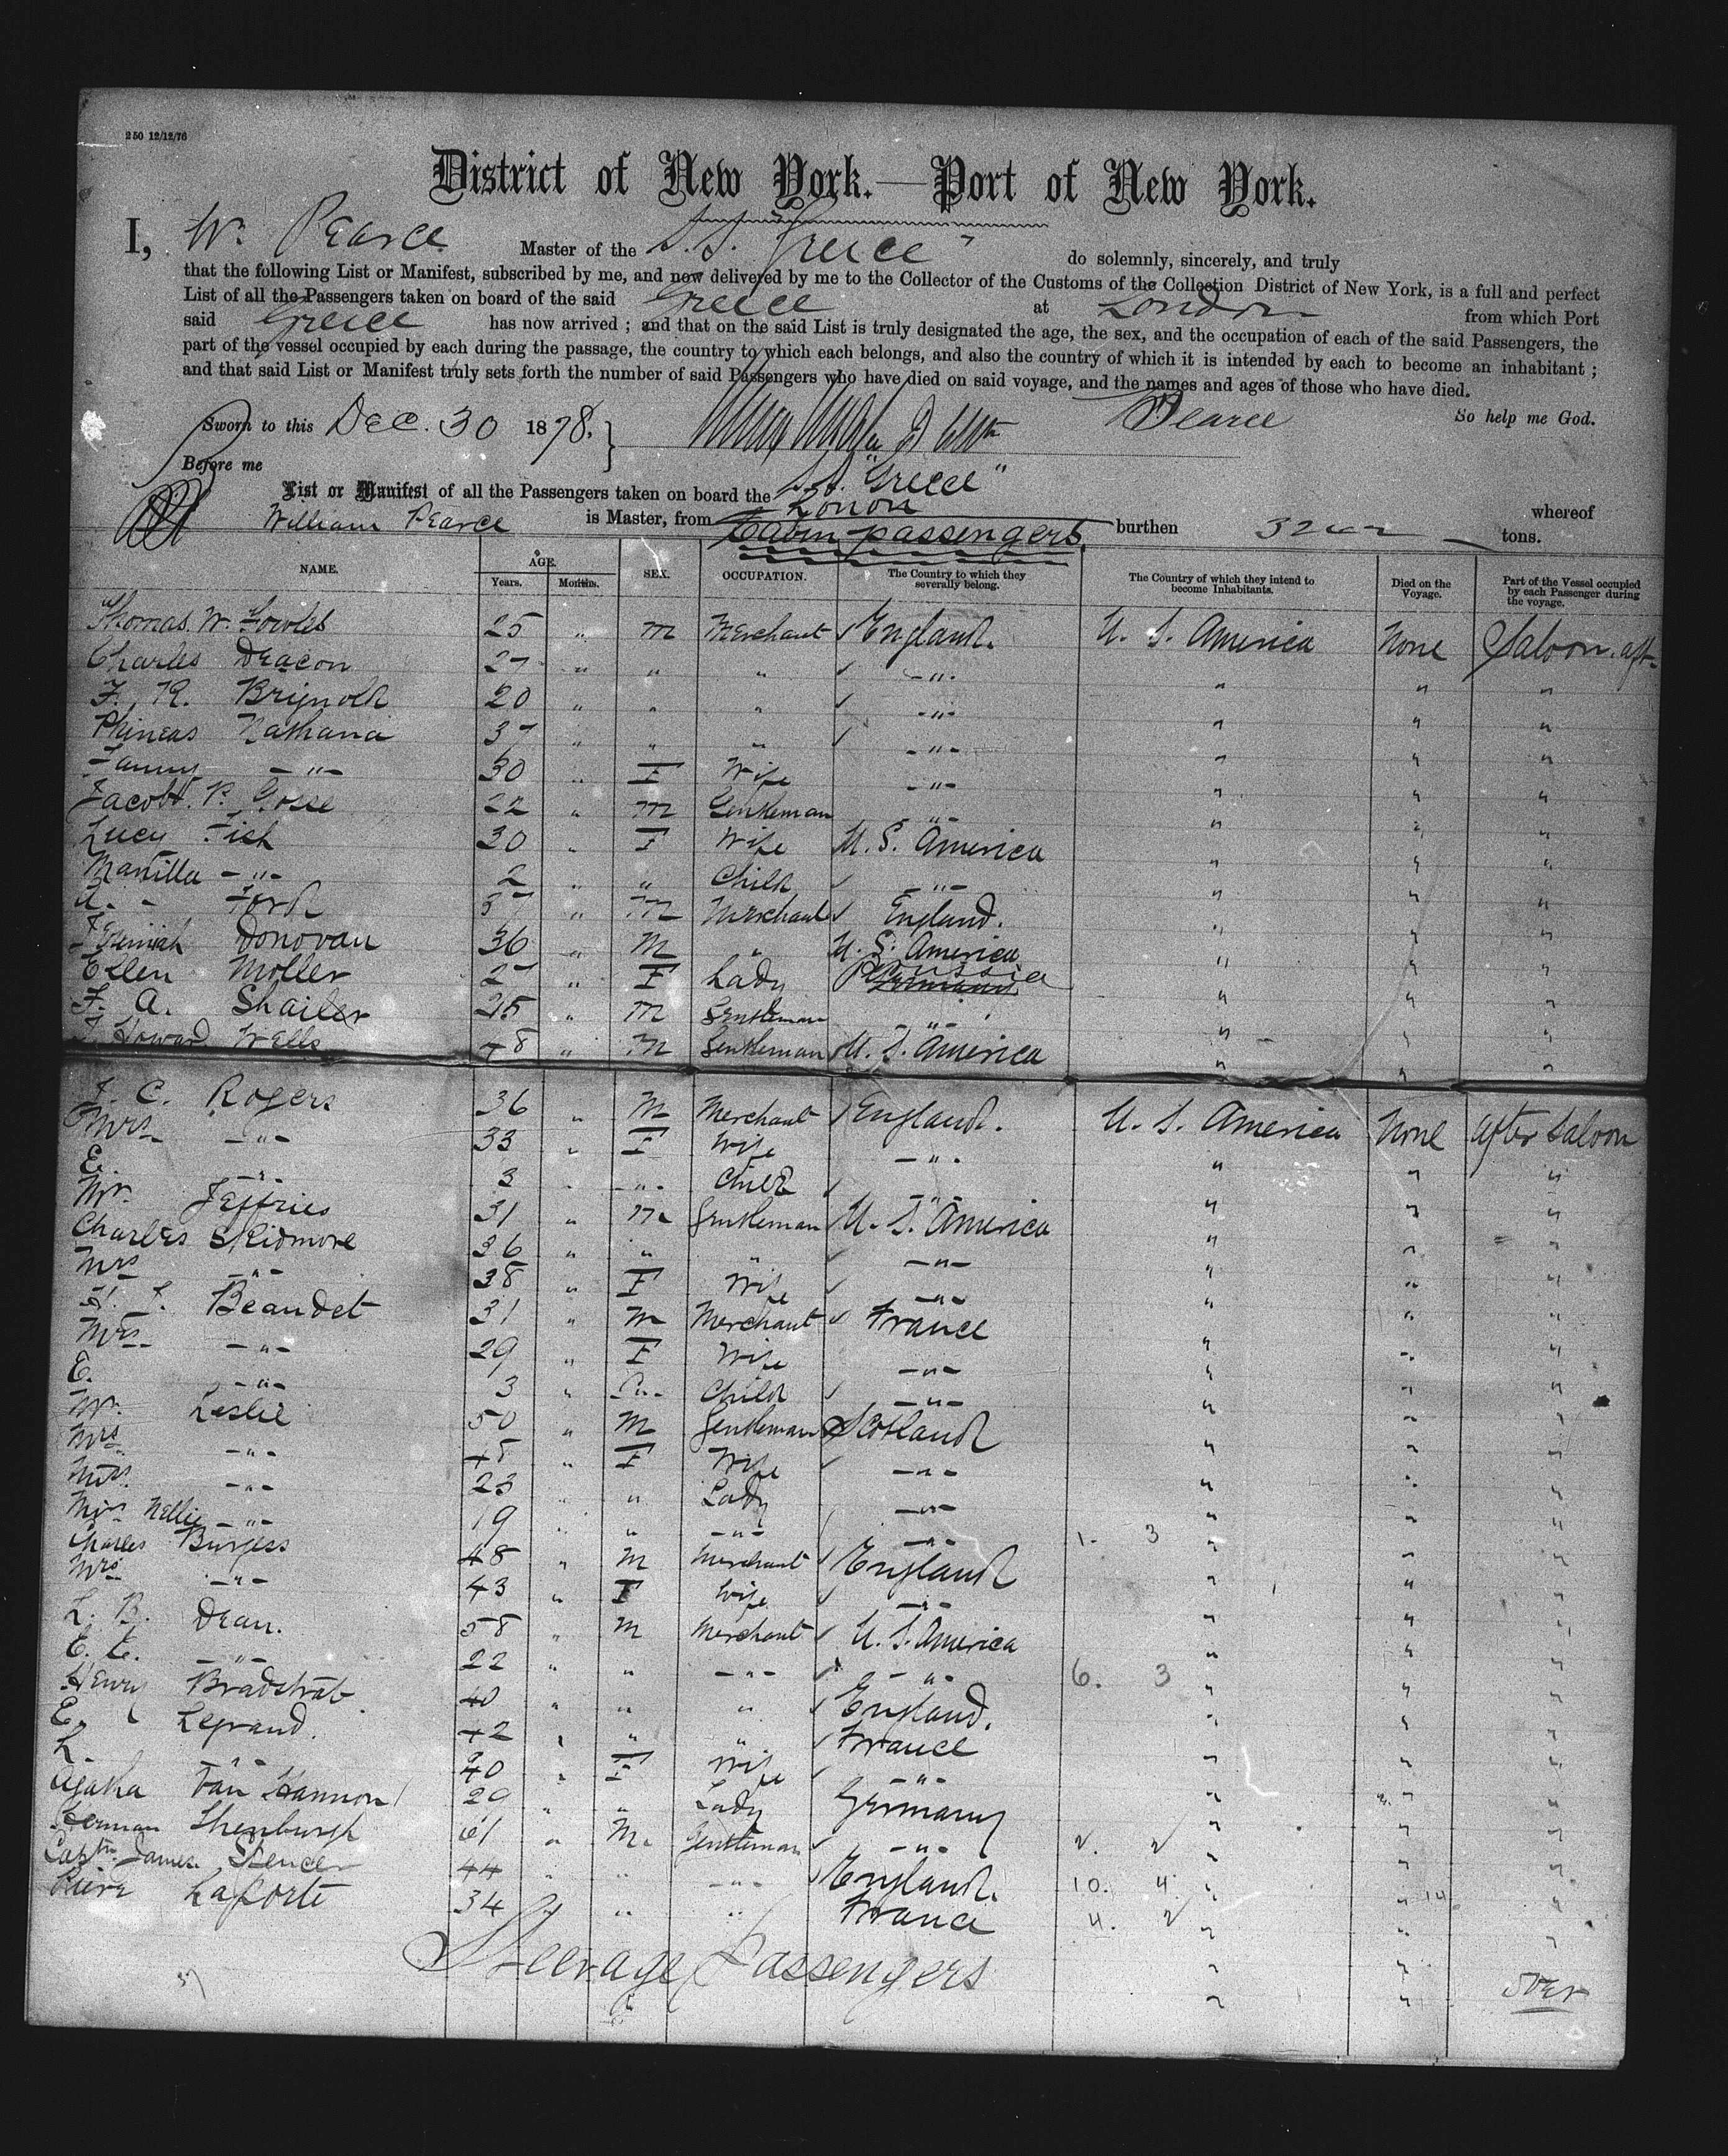 250 12/12/76
District of New York.—Port of New York.
I, Wm. Pearce Master of the S.S. "Greece" do solemnly, sincerely, and truly
that the following List or Manifest, subscribed by me, and now delivered by me to the Collector of the Customs of the Collection District of New York, is a full and perfect
List of all the Passengers taken on board of the said Greece at London from which Port
said Greece has now arrived ; and that on the said List is truly designated the age, the sex, and the occupation of each of the said Passengers, the
part of the vessel occupied by each during the passage, the country to which each belongs, and also the country of which it is intended by each to become an inhabitant ;
and that said List or Manifest truly sets forth the number of said Passengers who have died on said voyage, and the names and ages of those who have died.
Sworn to this Dec. 30 1878. Pearce So help me God.
Before me
List or Manifest of all the Passengers taken on board the S.S. "Greece" whereof
William Pearce is Master, from Lonon burthen tons.
Cabin passengers.
NAME. AGE. Years. Months. SEX. OCCUPATION. The Country to which they severally belong. The Country of which they intend to become Inhabitants. Died on the Voyage. Part of the Vessel occupied by each Passenger during the voyage.
Thomas. W. Fowles 25 " M Merchant England. U. S. America None Saloon. aft.
Charles Deacon 27 " " " -"- " " "
F. R. 20 " " " -"- " " "
Phineas 37 " " " -"- " " "
Fanny -"- 30 " F Wife -"- " " "
22 " M Gentleman -"- " " "
Lucy Fish 30 " F Wife U. S. America " " "
Manilla -"- 2 " " Child -"- " " "
A. Ford 37 " M Merchant England. " " "
Jeremiah Donovan 36 " M " U. S. America " " "
Ellen Moller 27 " F Lady Prussia " " "
F. A. Shailer 25 " M Gentleman -"- " " "
J. Howard Wells 48 " M Gentleman U. S. America " " "
J. C. Rogers 36 " M Merchant England. U. S. America None after Saloon
Mrs -"- 33 " F Wife -"- " " "
E. -"- 3 " -"- Child -"- " " "
Mr. Jeffries 31 " M Gentleman U. S. America " " "
Charles Skidmore 36 " " " -"- " " "
Mrs -"- 38 " F Wife -"- " " "
Beaudet 31 " M Merchant France " " "
Mrs -"- 29 " F Wife -"- " " "
E. -"- 3 " -"- Child -"- " " "
Mr. Leslie 50 " M Gentleman Scotland " " "
Mrs -"- 48 " F Wife -"- " " "
Miss -"- 23 " " Lady -"- " " "
Miss Nellie -"- 19 " " -"- -"- 1. 3 " " "
Charles Burgess 48 " M Merchant England " " "
Mrs -"- 43 " F Wife -"- " " "
L. B. Dean. 58 " M Merchant U. S. America " " "
E. C. -"- 22 " " -"- -"- 6. 3 " " "
Henry 40 " " " England. " " "
E. Legrand. 42 " " " France " " "
L. -"- 40 " F Wife -"- " " "
Agatha Van Hannon 29 " " Lady Germany " " "
Herman 61 " M. Gentleman -"- 2. 2 " " "
Captn. James Spencer 44 " " -"- England. 10. 4. " " 14 "
Laporte 34 " " " France 4. 2 " " "
Steerage Passengers " " over